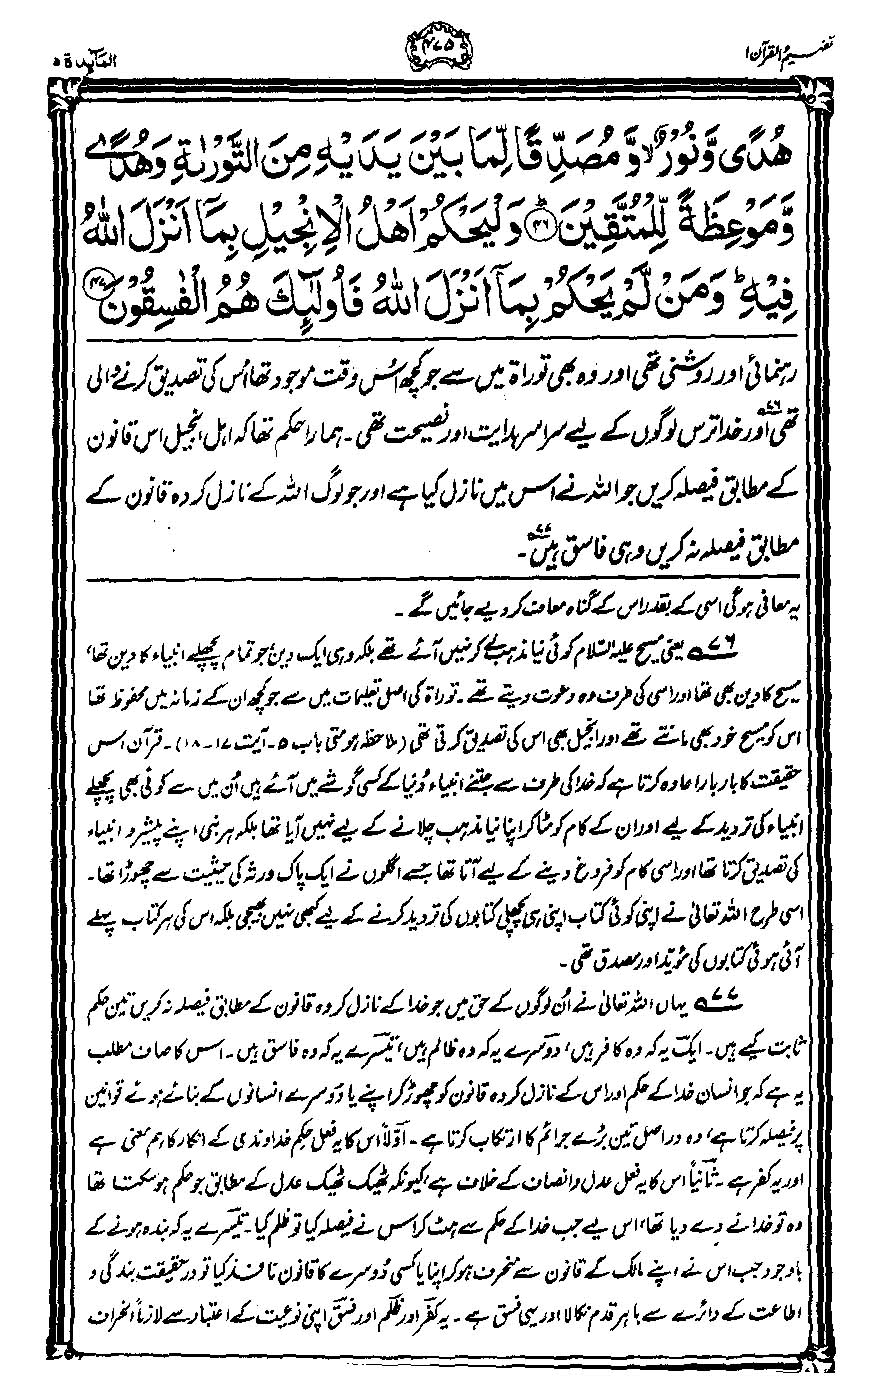 تفہیم القرآن ۱
۴۷۵
المآئدۃ ۵
هُدًى وَّنُوْرٌ ۙ وَّمُصَدِّقًا لِّمَا بَيْنَ يَدَيْهِ مِنَ التَّوْرٰىةِ وَهُدًى
وَّمَوْعِظَةً لِّلْمُتَّقِيْنَ ؕ﴿۴۶﴾ وَلْيَحْكُمْ اَهْلُ الْاِنْجِيْلِ بِمَاۤ اَنْزَلَ اللّٰهُ
فِيْهِ ؕ وَمَنْ لَّمْ يَحْكُمْ بِمَاۤ اَنْزَلَ اللّٰهُ فَاُولٰٓئِكَ هُمُ الْفٰسِقُوْنَ ﴿۴۷﴾
رہنمائی اور روشنی تھی اور وہ بھی توراۃ میں سے جو کچھ اُس وقت موجود تھا اُس کی تصدیق کرنے والی
تھی ۷۶ اور خدا ترس لوگوں کے لیے سراسر ہدایت اور نصیحت تھی۔ ہمارا حکم تھا کہ اہل انجیل اس قانون
کے مطابق فیصلہ کریں جو اللہ نے اس میں نازل کیا ہے اور جو لوگ اللہ کے نازل کردہ قانون کے
مطابق فیصلہ نہ کریں وہی فاسق ہیں ۷۷۔
یہ معافی ہوگی اسی کے بقدر اس کے گناہ معاف کر دیے جائیں گے۔
۷۶ یعنی مسیح علیہ السّلام کوئی نیا مذہب لے کر نہیں آئے تھے بلکہ وہی ایک دین، جو تمام پچھلے انبیاء کا دین تھا،
مسیح کا دین بھی تھا اور اسی کی طرف وہ دعوت دیتے تھے۔ توراۃ کی اصل تعلیمات میں سے جو کچھ ان کے زمانہ میں محفوظ تھا
اس کو مسیح خود بھی مانتے تھے اور انجیل بھی اس کی تصدیق کرتی تھی (ملاحظہ ہو متی باب ۵۔ آیت ۱۷۔۱۸)۔ قرآن اس
حقیقت کا بار بار اعادہ کرتا ہے کہ خدا کی طرف سے جتنے انبیاء دُنیا کے کسی گوشے میں آئے ہیں اُن میں سے کوئی بھی پچھلے
انبیاء کی تردید کے لیے اور ان کے کام کو مٹا کر اپنا نیا مذہب چلانے کے لیے نہیں آیا تھا بلکہ ہر نبی اپنے پیشرو انبیاء
کی تصدیق کرتا تھا اور اسی کام کو فروغ دینے کے لیے آتا تھا جسے اگلوں نے ایک پاک ورثہ کی حیثیت سے چھوڑا تھا۔
اسی طرح اللہ تعالیٰ نے اپنی کوئی کتاب اپنی ہی پچھلی کتابوں کی تردید کرنے کے لیے کبھی نہیں بھیجی بلکہ اس کی ہر کتاب پہلے
آئی ہوئی کتابوں کی مؤید اور مصدق تھی۔
۷۷ یہاں اللہ تعالیٰ نے اُن لوگوں کے حق میں جو خدا کے نازل کردہ قانون کے مطابق فیصلہ نہ کریں تین حکم
ثابت کیے ہیں۔ ایک یہ کہ وہ کافر ہیں، دوسرے یہ کہ وہ ظالم ہیں، تیسرے یہ کہ وہ فاسق ہیں۔ اس کا صاف مطلب
یہ ہے کہ جو انسان خدا کے حکم اور اس کے نازل کردہ قانون کو چھوڑ کر اپنے یا دوسرے انسانوں کے بنائے ہوئے قوانین
پر فیصلہ کرتا ہے، وہ دراصل تین بڑے جرائم کا ارتکاب کرتا ہے۔ اوّلاً اس کا یہ فعل حکم خداوندی کے انکار کا ہم معنی ہے
اور یہ کفر ہے۔ ثانیاً اس کا یہ فعل عدل و انصاف کے خلاف ہے، کیونکہ ٹھیک ٹھیک عدل کے مطابق جو حکم ہو سکتا تھا
وہ تو خدا نے دے دیا تھا، اس لیے جب خدا کے حکم سے ہٹ کر اس نے فیصلہ کیا تو ظلم کیا۔ تیسرے یہ کہ بندہ ہونے کے
باوجود جب اس نے اپنے مالک کے قانون سے منحرف ہو کر اپنا یا کسی دُوسرے کا قانون نافذ کیا تو درحقیقت بندگی و
اطاعت کے دائرے سے باہر قدم نکالا اور یہی فسق ہے۔ یہ کفر اور ظلم اور فسق اپنی نوعیت کے اعتبار سے لازماً انحراف